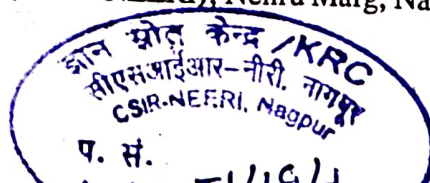 Nehru Marg, Na
ज्ञान स्रोत केन्द्र /KRC
सीएसआईआर-नीरी, नागपूर
CSIR-NEERI, Nagpur
प. सं.